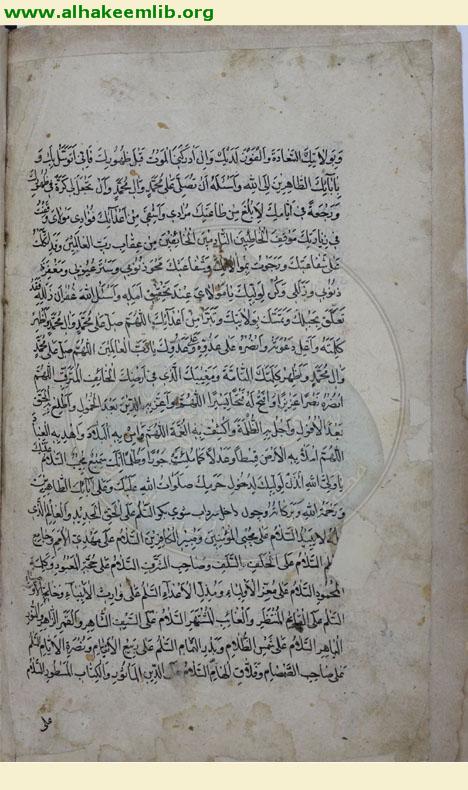 www.alhakeemlib.org
وبولايتك السعادة والفوز لديك وان ادركني الموت قبل ظهورك فاني اتوسل بك و
بابائك الطاهرين الى الله واسئله ان يصلي على محمد وال محمد وان يجعل لي كرة في ظهورك
ورجعة في ايامك لابلغ من طاعتك مرادي واشفي من اعدائك فؤادي مولاي وقفت
في زيارتك موقف الخاطئين النادمين الخائفين من عقاب رب العالمين وقد اتكلت
على شفاعتك ورجوت بموالاتك وشفاعتك محو ذنوبي وستر عيوبي ومغفرة
زللي فكن لوليك يا مولاي عند تحقيق امله واسئل الله غفران زلله فقد
تعلق بحبلك وتمسك بولايتك وتبرأ من اعدائك اللهم صل على محمد وال محمد
كلمته واعل دعوته وانصره على عدوه وعدوك يا رب العالمين اللهم صل على محمد
وال محمد واظهر كلمتك التامة ومغيبك الذي في ارضك الخائف المترقب اللهم
انصره نصرا عزيزا وافتح له فتحا يسيرا اللهم واعز به الدين بعد الخمول واطلع به الحق
بعد الافول واجل به الظلمة واكشف به الغمة اللهم وامن به البلاد واهد به العباد
اللهم املا به الارض قسطا وعدلا كما ملئت جورا وظلما انك سميع مجيب السلام عليك
يا ولي الله ائذن لوليك لدخول حرمك صلوات الله عليك وعلى ابائك الطاهرين
ورحمة الله وبركاته السلام على الحق الجديد والعالم الذي
لا يبيد السلام على محيي المؤمنين ومبير الكافرين السلام على مهدي الامم وجامع
السلام على خلف السلف وصاحب الشرف السلام على حجة المعبود وكلمة
المحمود السلام على معز الاولياء ومذل الاعداء السلام على وارث الانبياء وخاتم
السلام على القائم المنتظر والغائب المشتهر السلام على السيف الشاهر والقمر الزاهر والنور
الباهر السلام على شمس الظلام وبدر التمام السلام على ربيع الايتام ونضرة الايام السلام
على صاحب الصمصام وفلاق الهام السلام على الدين الماثور والكتاب المسطور السلام
على